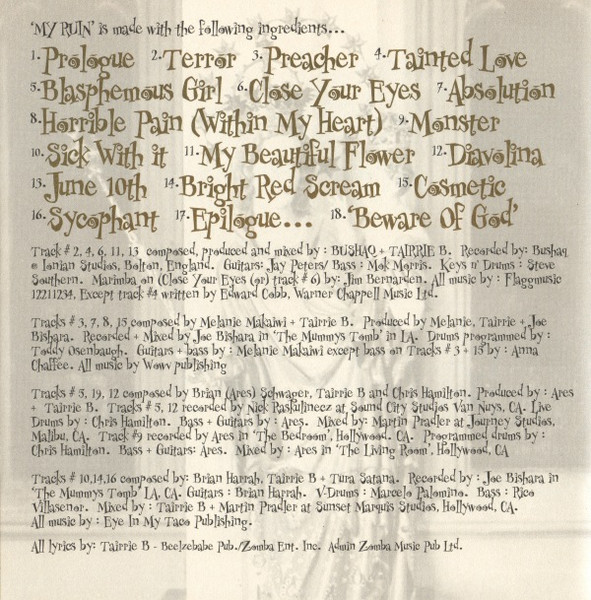 'MY RUIN' is made with the following ingredients...
1. Prologue 2. Terror 3. Preacher 4. Tainted Love
5. Blasphemous Girl 6. Close Your Eyes 7. Absolution
8. Horrible Pain (Within My Heart) 9. Monster
10. Sick With it 11. My Beautiful Flower 12. Diavolina
13. June 10th 14. Bright Red Scream 15. Cosmetic
16. Sycophant 17. Epilogue... 18. 'Beware Of God'
Track # 2, 4, 6, 11, 13 composed, produced and mixed by : BUSHAQ + TAIRRIE B. Recorded by: Bushaq
@ Ionian Studios, Bolton, England. Guitars: Jay Peters/ Bass : Mok Morris. Keys n' Drums : Steve
Southern. Marimba on (Close Your Eyes (or) track # 6) by: Jim Bernarden. All music by : Flaggmusic
12211234, Except track #4 written by Edward Cobb, Warner Chappell Music Ltd.
Tracks # 3, 7, 8, 15 composed by Melanie Makaiwi + Tairrie B. Produced by Melanie, Tairrie + Joe
Bishara. Recorded + Mixed by Joe Bishara in 'The Mummys Tomb' in LA. Drums programmed by :
Toddy Osenbaugh. Guitars + bass by : Melanie Makaiwi except bass on Tracks # 3 + 15 by : Anna
Chaffee. All music by Wowv publishing
Tracks # 5, 19, 12 composed by Brian (Ares) Schwager, Tairrie B and Chris Hamilton. Produced by : Ares
+ Tairrie B. Tracks # 5, 12 recorded by Nick Raskulinecz at Sound City Studios Van Nuys, CA. Live
Drums by : Chris Hamilton. Bass + Guitars by : Ares. Mixed by: Martin Pradler at Journey Studios,
Malibu, CA. Track #9 recorded by Ares in 'The Bedroom', Hollywood, CA. Programmed drums by :
Chris Hamilton. Bass + Guitars: Ares. Mixed by : Ares in 'The Living Room', Hollywood, CA
Tracks # 10,14,16 composed by: Brian Harrah, Tairrie B + Tura Satana. Recorded by : Joe Bishara in
'The Mummys Tomb' LA, CA. Guitars : Brian Harrah. V-Drums : Marcelo Palomino. Bass : Rico
Villasenor. Mixed by : Tairrie B + Martin Pradler at Sunset Marquis Studios, Hollywood, CA.
All music by : Eye In My Taco Publishing.
All lyrics by: Tairrie B - Beelzebabe Pub./Zomba Ent. Inc. Admin Zomba Music Pub Ltd.